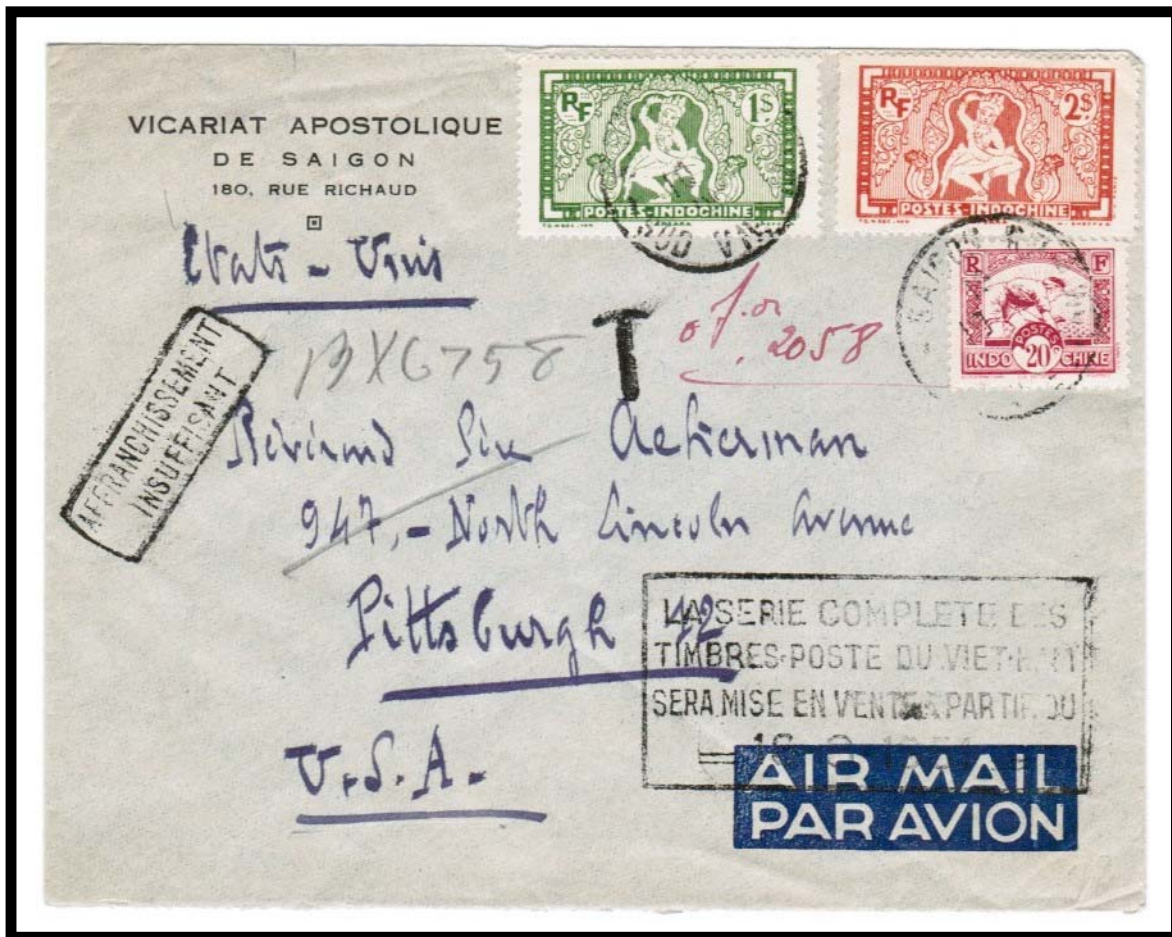 VICARIAT APOSTOLIQUE
DE SAIGON
180, RUE RICHAUD
RF 1$
POSTES-INDOCHINE
RF 2$
POSTES-INDOCHINE
R F
POSTES
INDO 20c CHINE
SAIGON
Etats - Unis
AFFRANCHISSEMENT
INSUFFISANT
T
2058
BX6758
Révérend Sire Ackerman
947,- North Lincoln Avenue
Pittsburgh 12
U.S.A.
LA SERIE COMPLETE DES
TIMBRES-POSTE DU VIET-NAM
SERA MISE EN VENTE A PARTIR DU
AIR MAIL
PAR AVION